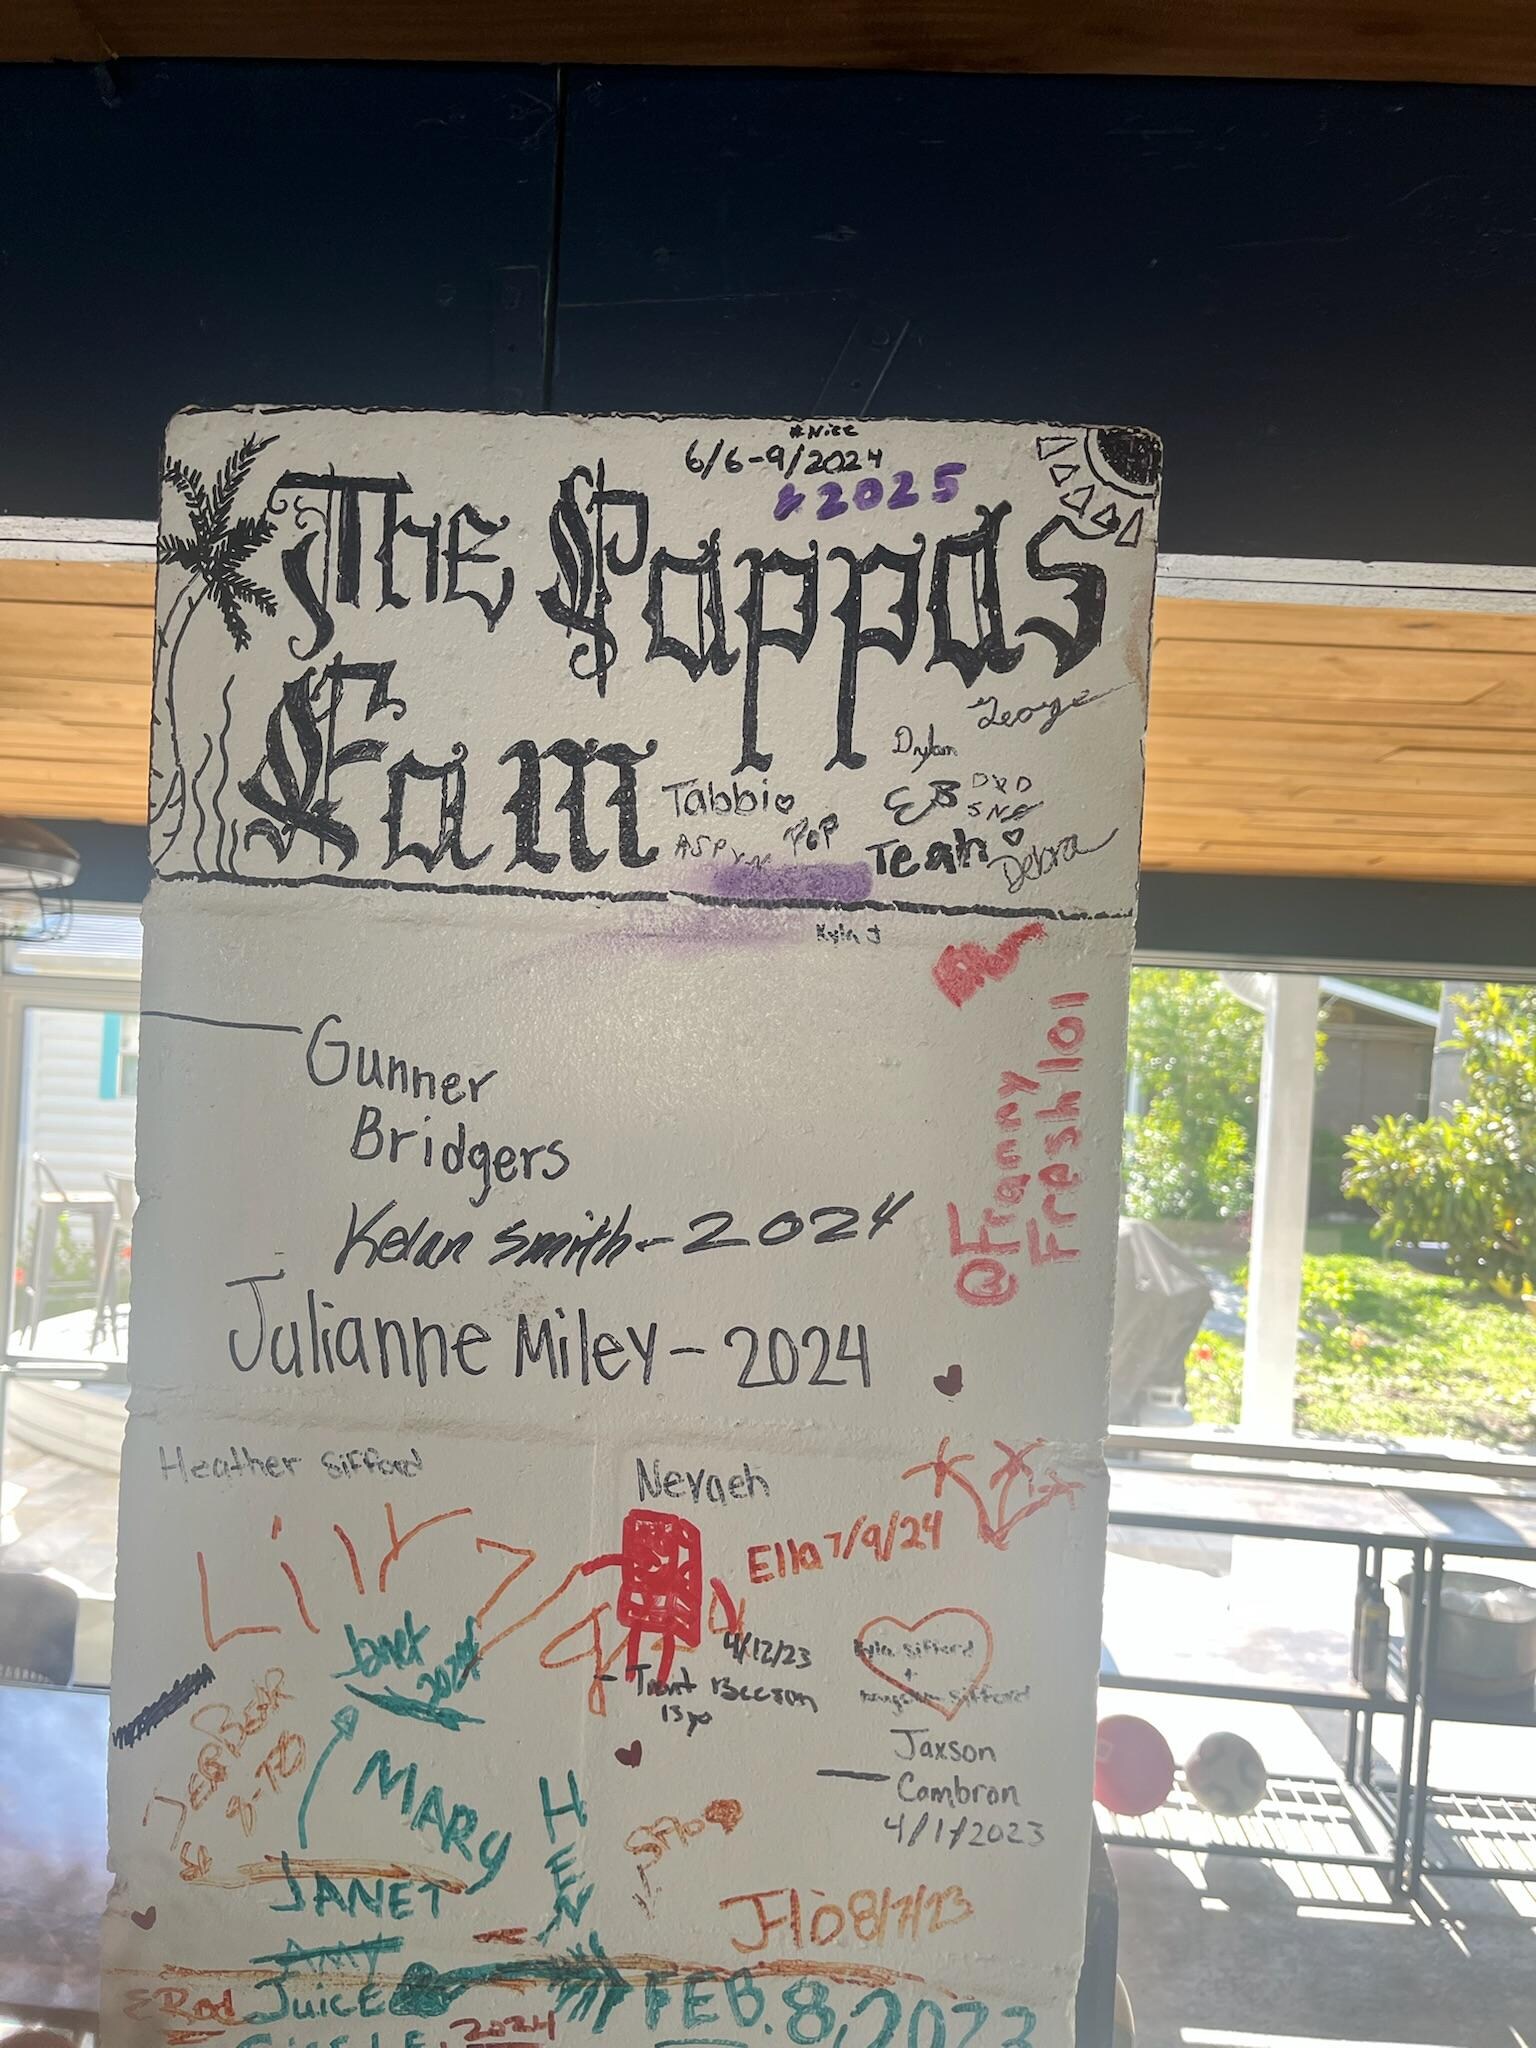 #Nice
6/6-9/2024
& 2025
The Pappas
Fam
George
Dylan
Tabbi
EB
DAD
Aspyn
Pop
Teah
Debra
Kyla J
Gunner
Bridgers
@Franny
Fresh101
Kelan Smith - 2024
Julianne Miley - 2024
Heather Sifford
Nevaeh
Ella 7/9/24
Lily
Janet
2024
4/12/23
Trent Beeson
13yo
Kyla Sifford
+
Sifford
JERBEAR
MARY
HENRY
Jaxson
Cambron
4/1/2023
JANET
Jlo 8/7/23
AMY
ERod
JuicE
FEB. 8, 2023
2024